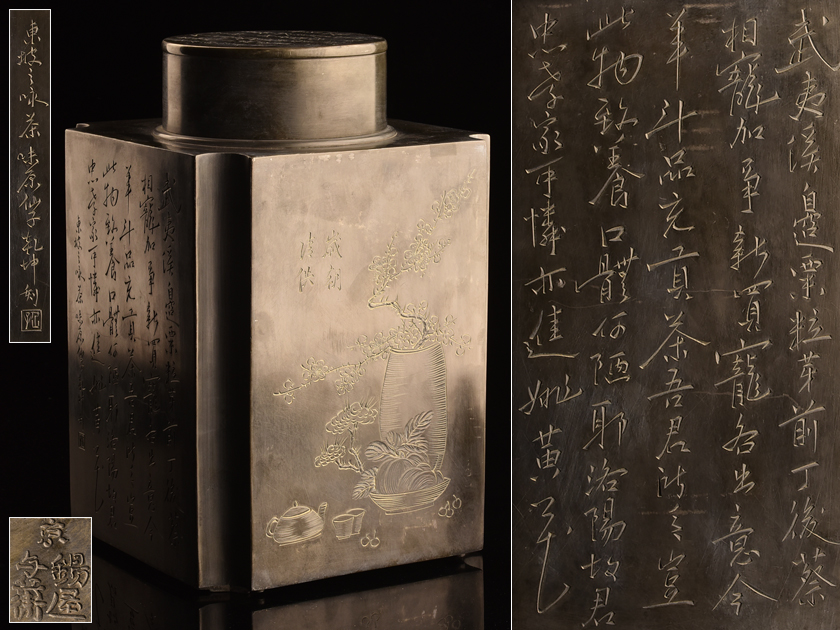 東坡之咏茶 味茶仙学乾坤刻
歳朝
清供
武夷渓邉粟粒芽前丁後蔡
相寵加争新買寵各出意今
年斗品充貢茶吾君所乏豈
此物致養口體何陋耶洛陽故君
忠孝家可憐亦進姚黄花
京
錫屋